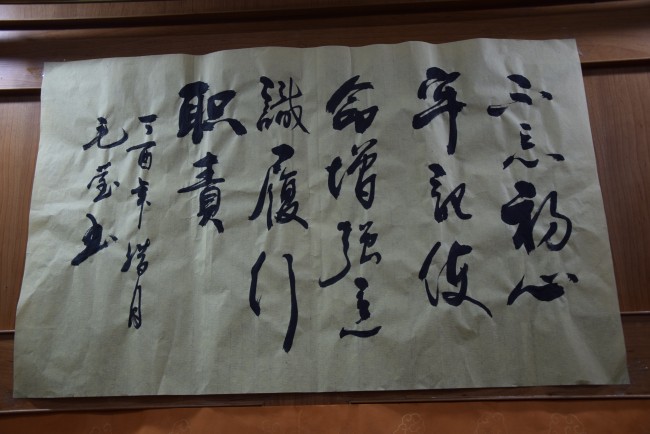 不忘初心
牢記使
命增强意
識履行
职責
丁酉年腊月
毛莹书